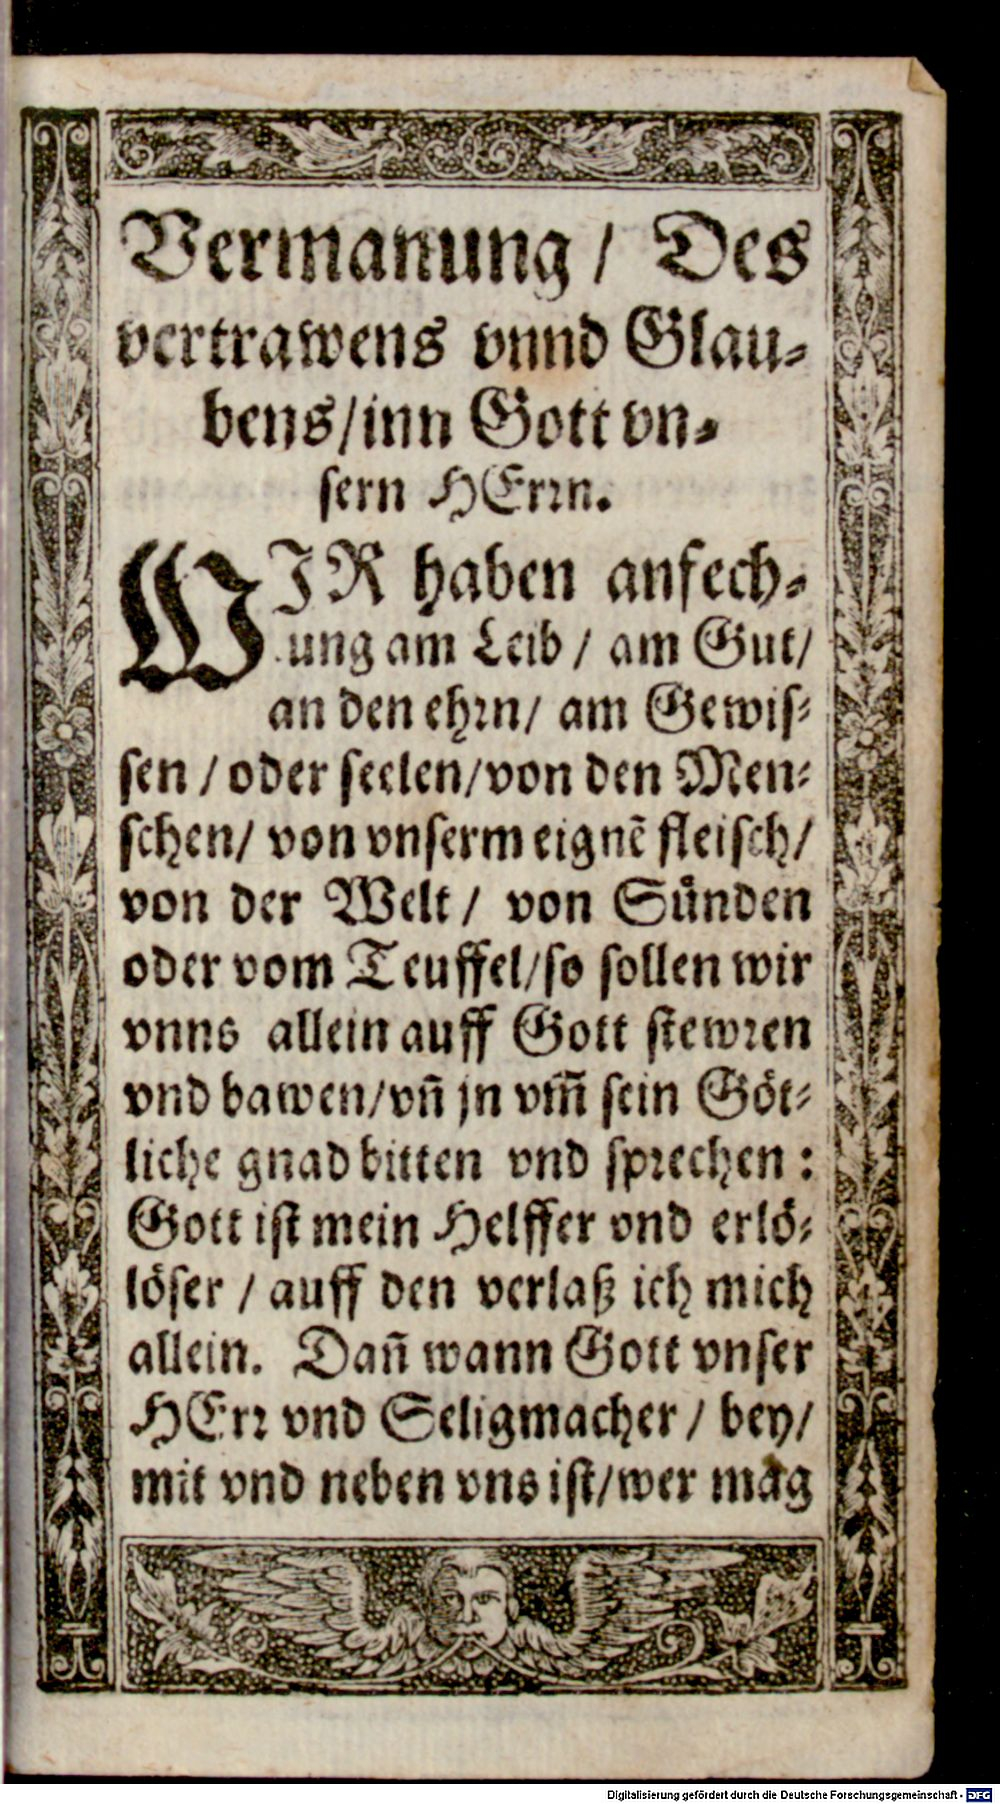 Vermanung / Des
vertrawens vnnd Glau-
bens / inn Gott vn-
sern HErrn.
WIR haben anfech-
ung am Leib / am Gut /
an den ehrn / am Gewis-
sen / oder seelen / von den Men-
schen / von vnserm eignē fleisch /
von der Welt / von Sünden
oder vom Teuffel / so sollen wir
vnns allein auff Gott stewren
vnd bawen / vn̄ jn vm̄ sein Göt-
liche gnad bitten vnd sprechen :
Gott ist mein Helffer vnd erlö-
löser / auff den verlaß ich mich
allein. Dan̄ wann Gott vnser
HErr vnd Seligmacher / bey /
mit vnd neben vns ist / wer mag
Digitalisierung gefördert durch die Deutsche Forschungsgemeinschaft - DFG